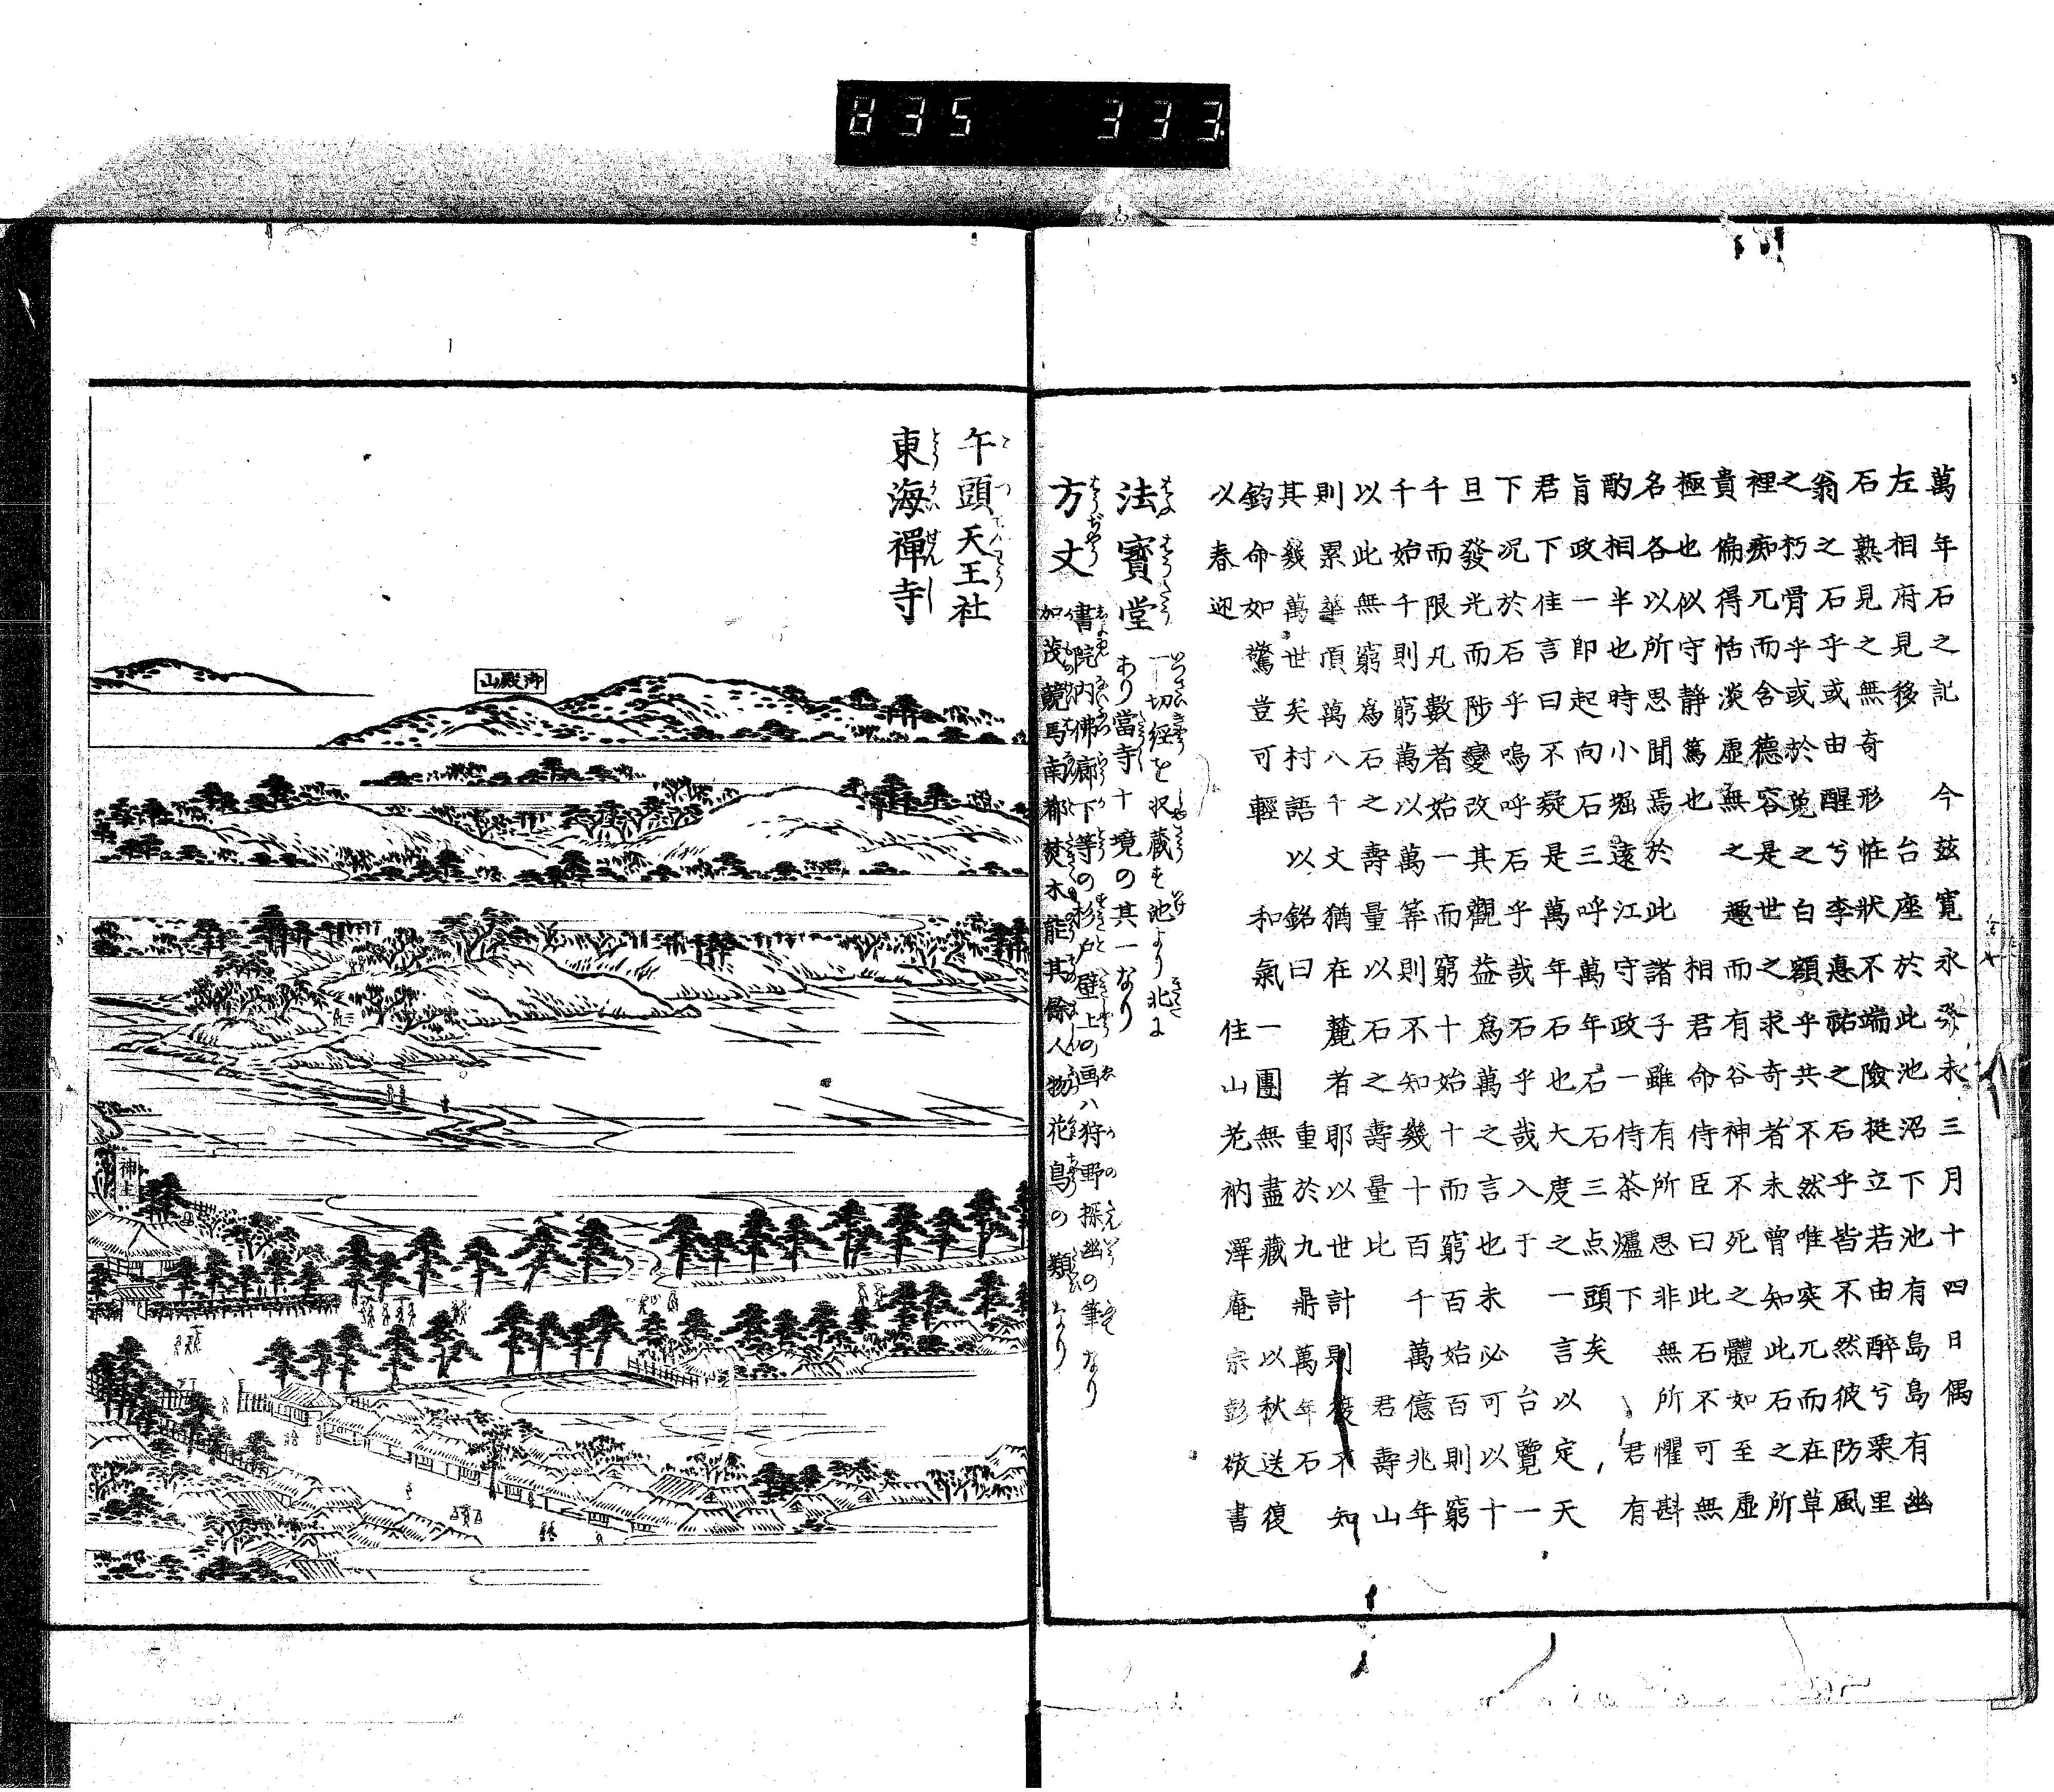 萬年石之記　今茲寛永癸未三月十四日偶
左相府見移　台座於此池沼下池有島島有幽
石熟見之無奇形怪狀不端險挺立若由醉兮栗里
翁之石乎或由醒兮李悳祐之石乎皆不然彼防風
之朽骨乎或於莬之白額乎共不然唯突兀而在草
裡痴兀而含德容是世之求奇者未曾知此石之所
貴偏得恬淡虚無之趣而有谷神不死之體如至虚
極也似守静篤也　相君命侍臣曰此石不可無
名各以所思聞焉於此諸子雖有所思非無所懼斟
酌相半也時小堀遠江守政一侍茶爐下　君有
旨政一即起向石三呼萬年石石三点頭矣
君下佳言曰不疑是萬年石也大度之一言以定天
下況於石乎嗚呼石乎哉石乎哉入于　台覽一
旦發光而陟變改其觀益爲萬之言也未必可以十
千而限凡數者始一而窮十始十而窮百始百則窮
千始千則窮萬以萬筭則不知幾十百千萬億兆年
以此無窮爲石之壽量以石之壽量比　君壽山
則累華頂萬八千丈猶在麓者耶以世計則復不知
其幾萬世矣村語以銘曰　重於九鼎萬年石
鈞命如驚豈可輕　和氣一團無盡藏　以秋送復
以春迎　住山老衲澤庵宗彭敬書
法寳堂　一切経を収蔵す池より北に
あり當寺十境の其一なり
方丈　書院内佛廊下等の杉戸壁上の画ハ狩野探幽の筆なり
加茂競馬南都焚木能其餘人物花鳥の類なり
牛頭天王社
東海禪寺
御殿山
神主